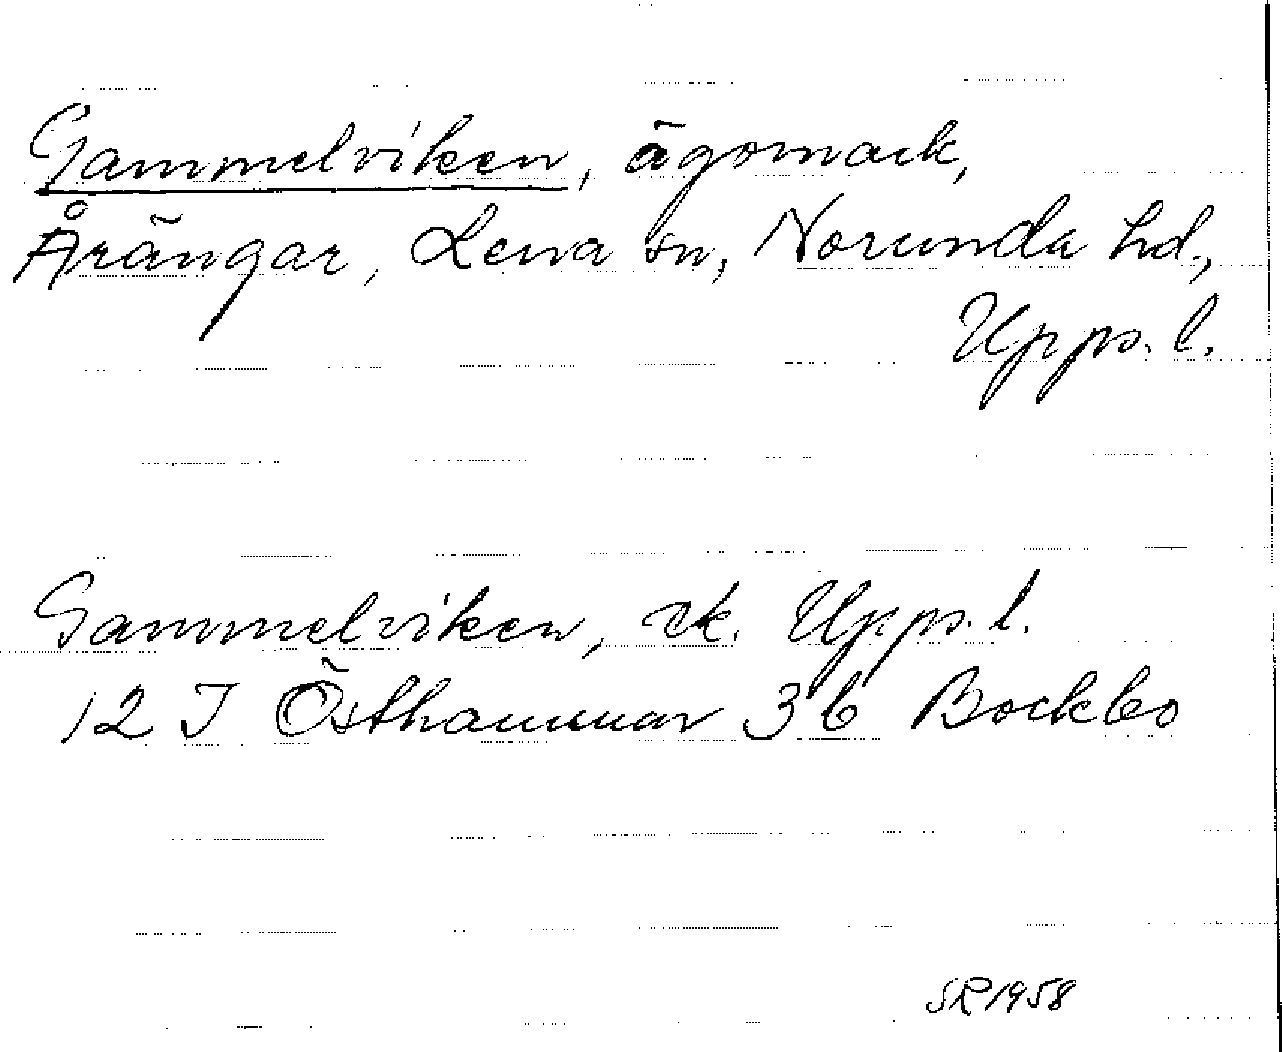 Gammelviken, ägomark,
Årängar, Lena sn, Norunda hd.,
Upps. l.
Gammelviken, ek. Upps. l.
12 I Östhammar 3b Bockbo
SR 1958